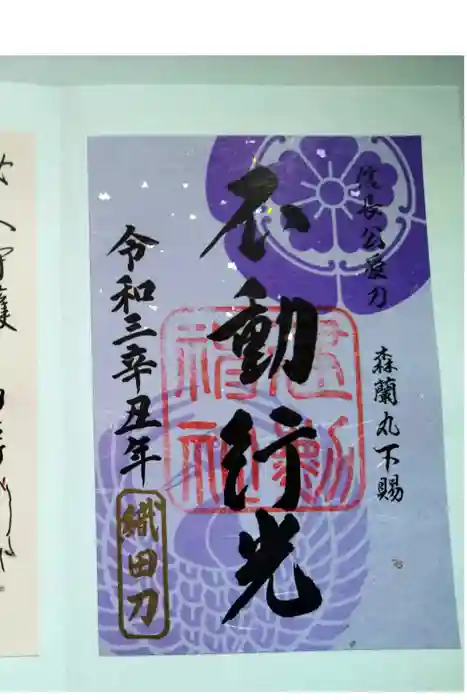 信長公愛刀
森蘭丸下賜
不動行光
建勲
神社
令和三辛丑年
織田刀